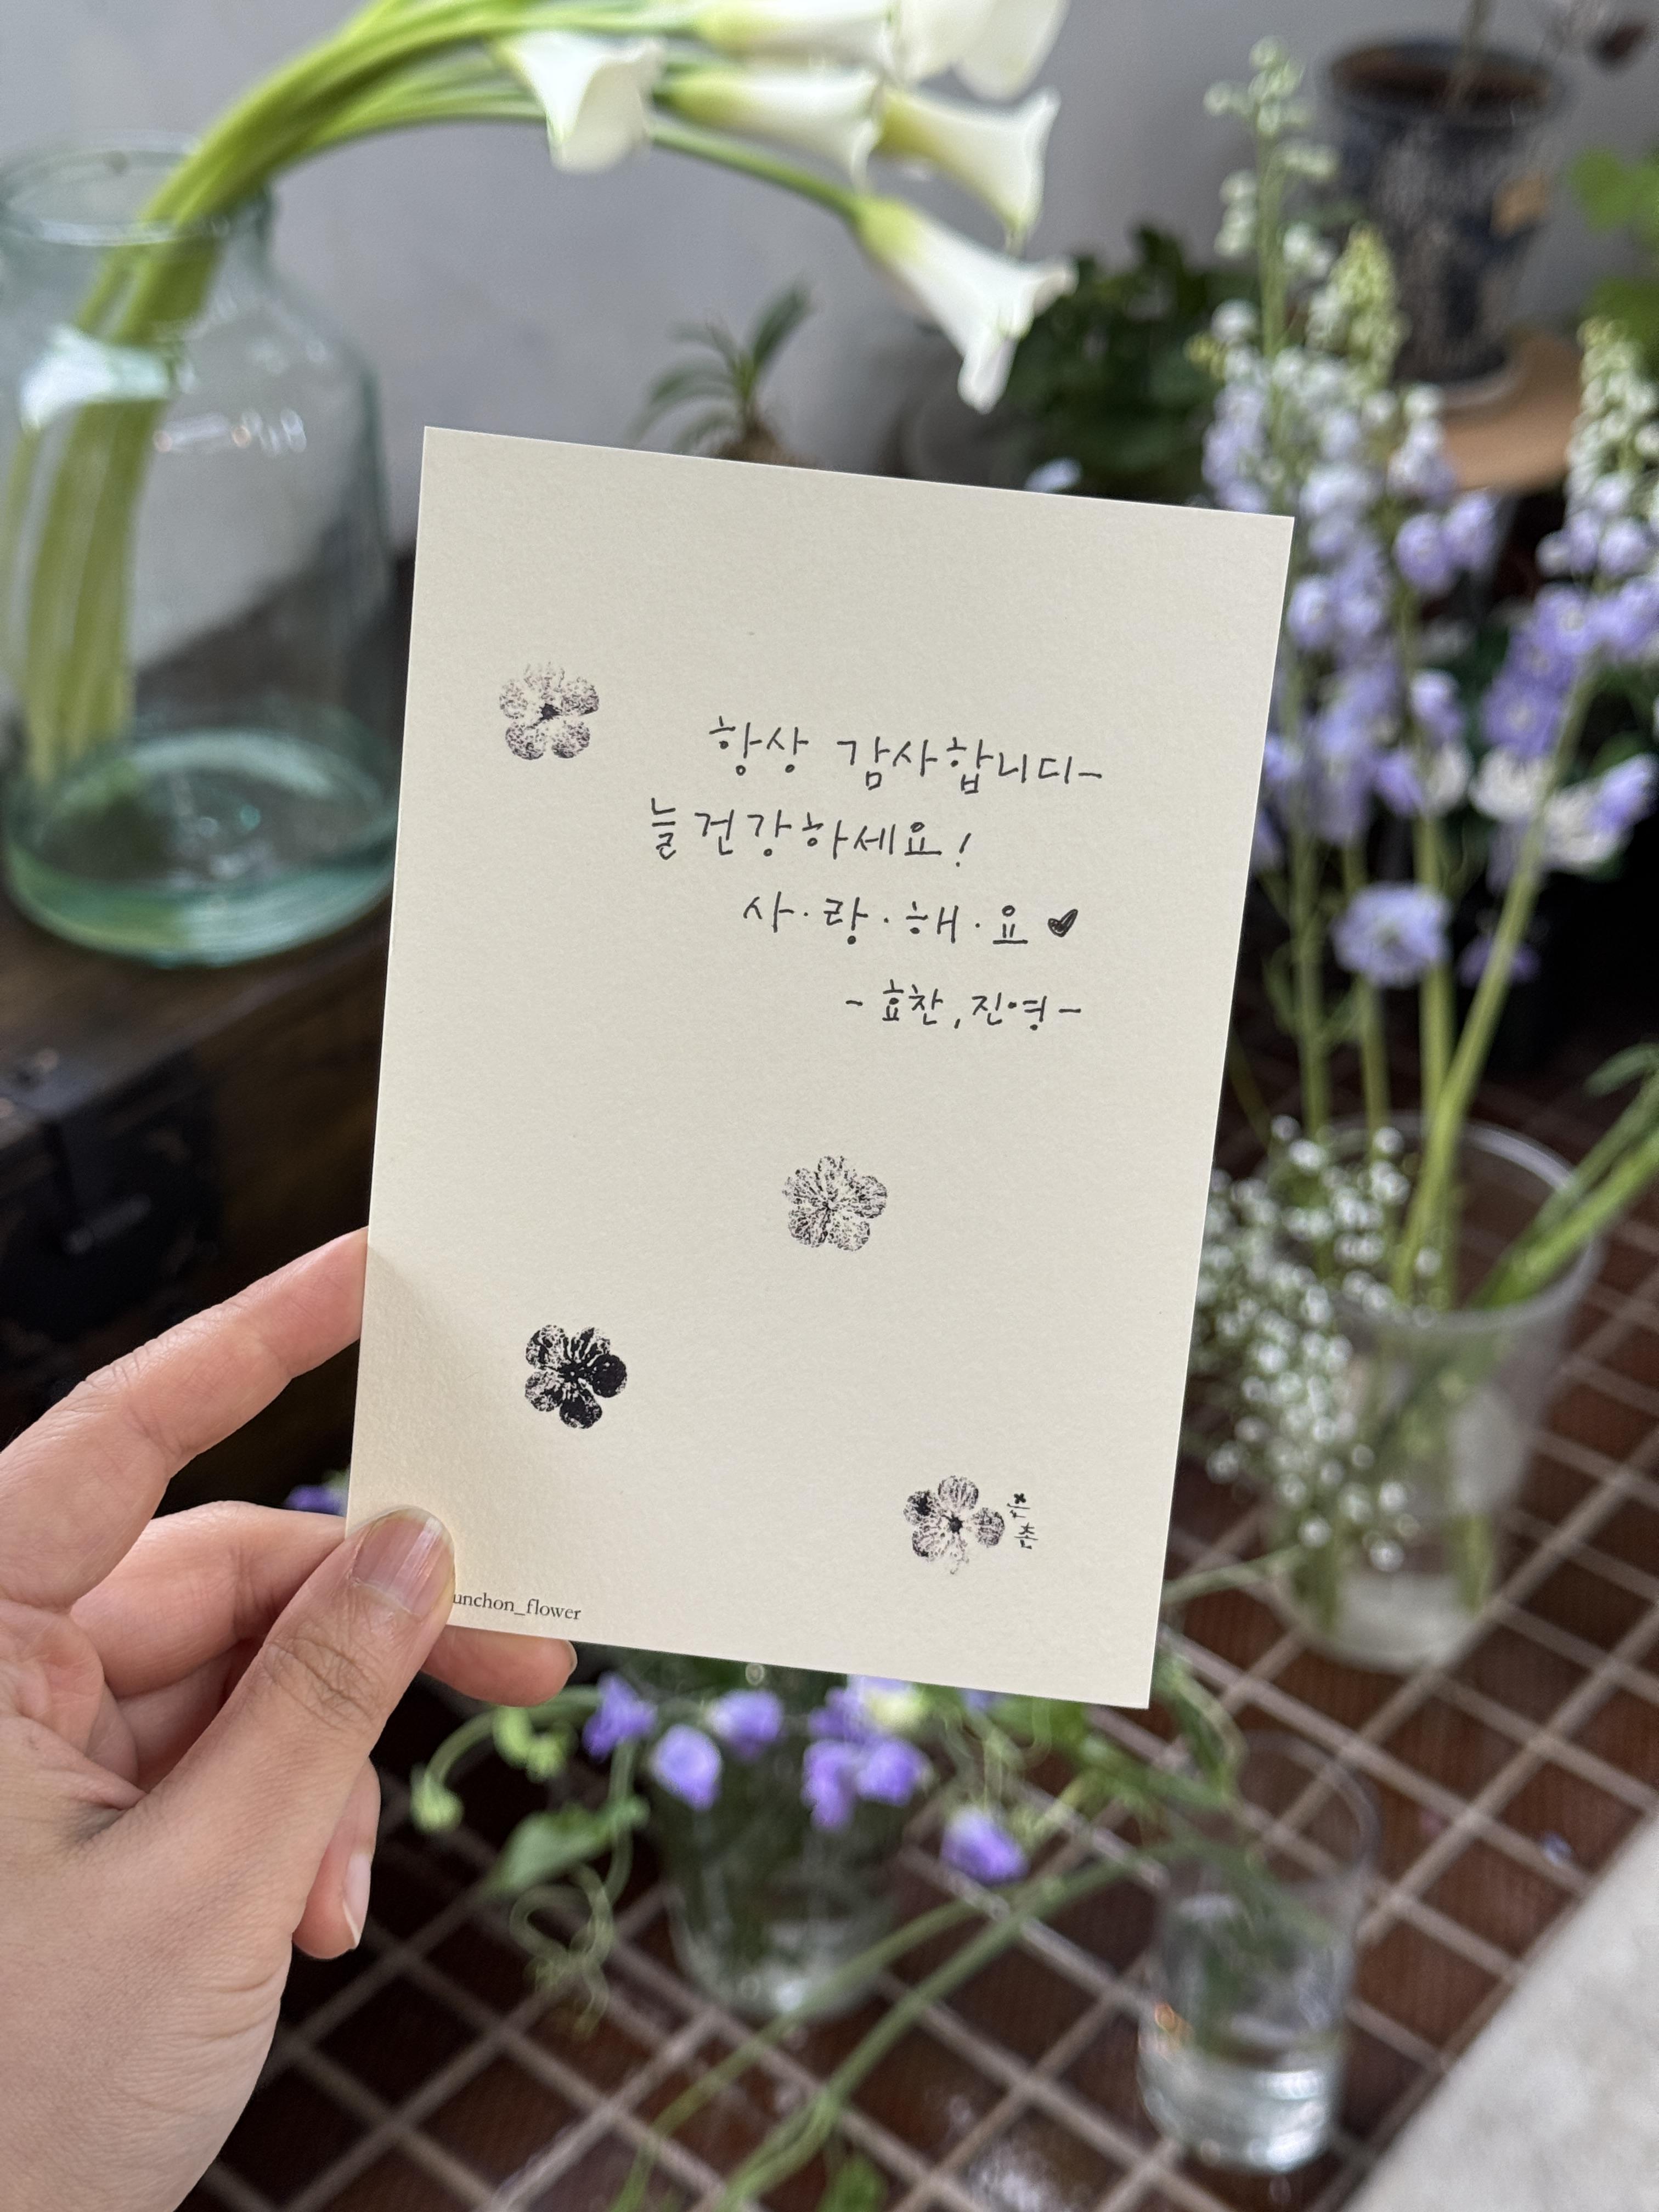 항상 감사합니다-
늘 건강하세요!
사·랑·해·요 ♥
- 효찬, 진영 -
unchon_flower